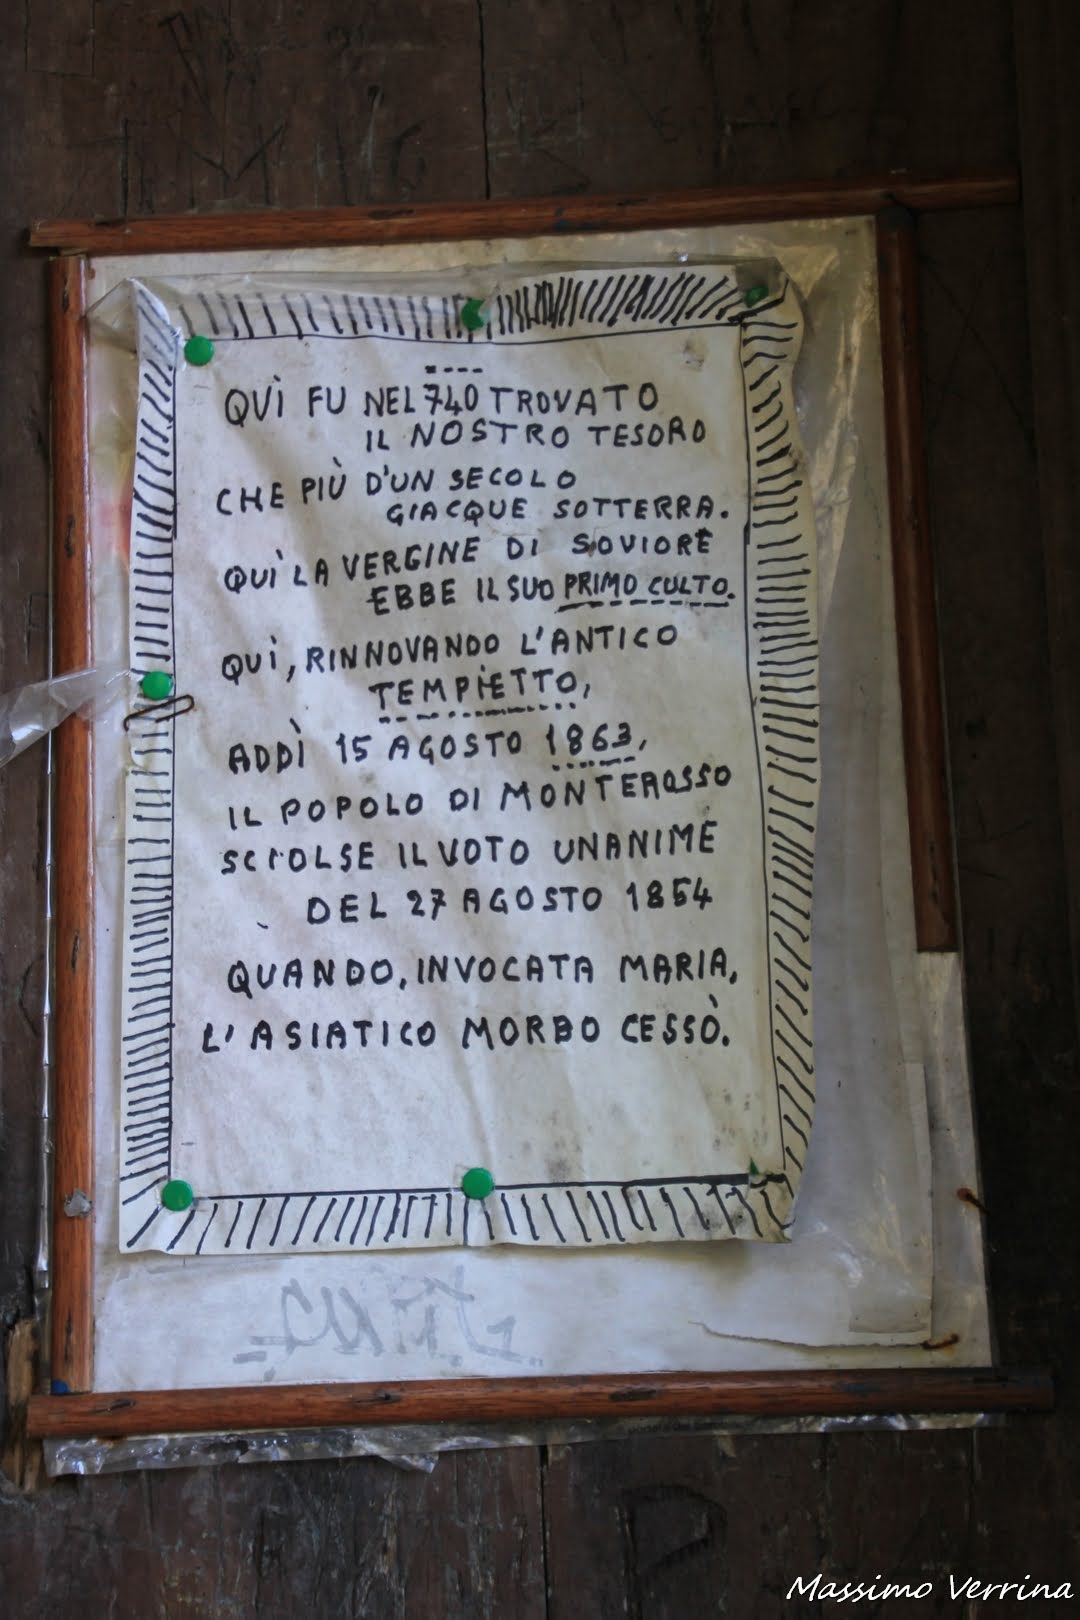 QUÌ FU NEL 740 TROVATO
IL NOSTRO TESORO
CHE PIÙ D'UN SECOLO
GIACQUE SOTTERRA.
QUÌ LA VERGINE DI SOVIORE
EBBE IL SUO PRIMO CULTO.
QUÌ, RINNOVANDO L'ANTICO
TEMPIETTO,
ADDÌ 15 AGOSTO 1863,
IL POPOLO DI MONTEROSSO
SCIOLSE IL VOTO UNANIME
DEL 27 AGOSTO 1854
QUANDO, INVOCATA MARIA,
L'ASIATICO MORBO CESSÒ.
Massimo Verrina